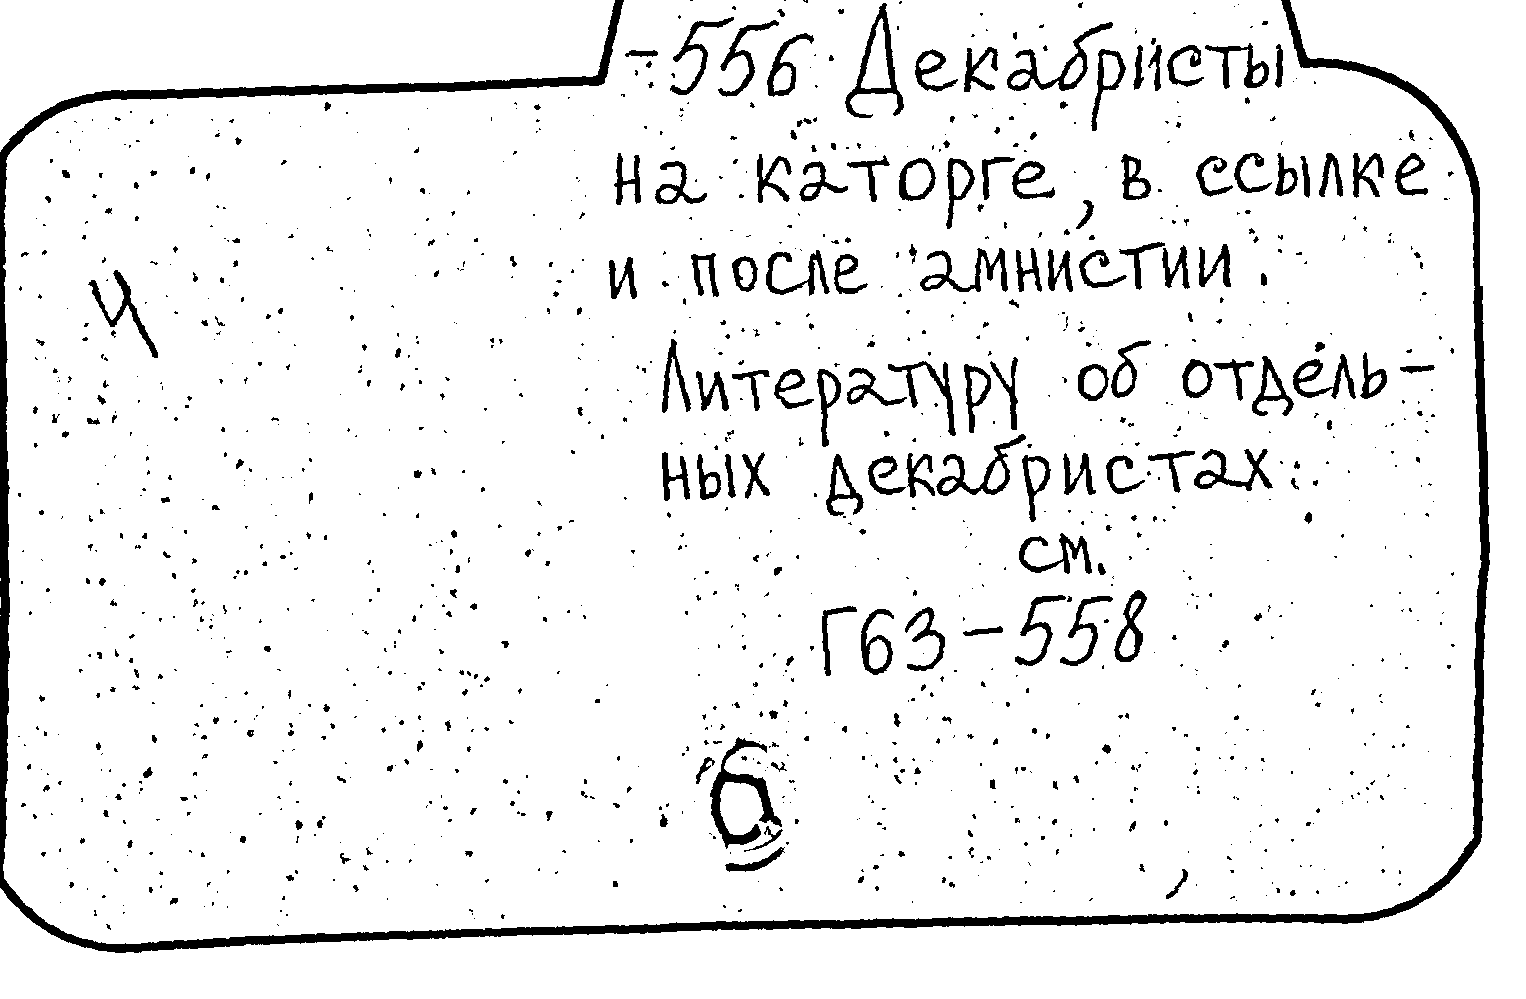 -556 Декабристы
на каторге, в ссылке
и после амнистии.
Литературу об отдель-
ных декабристах
см.
Г63-558